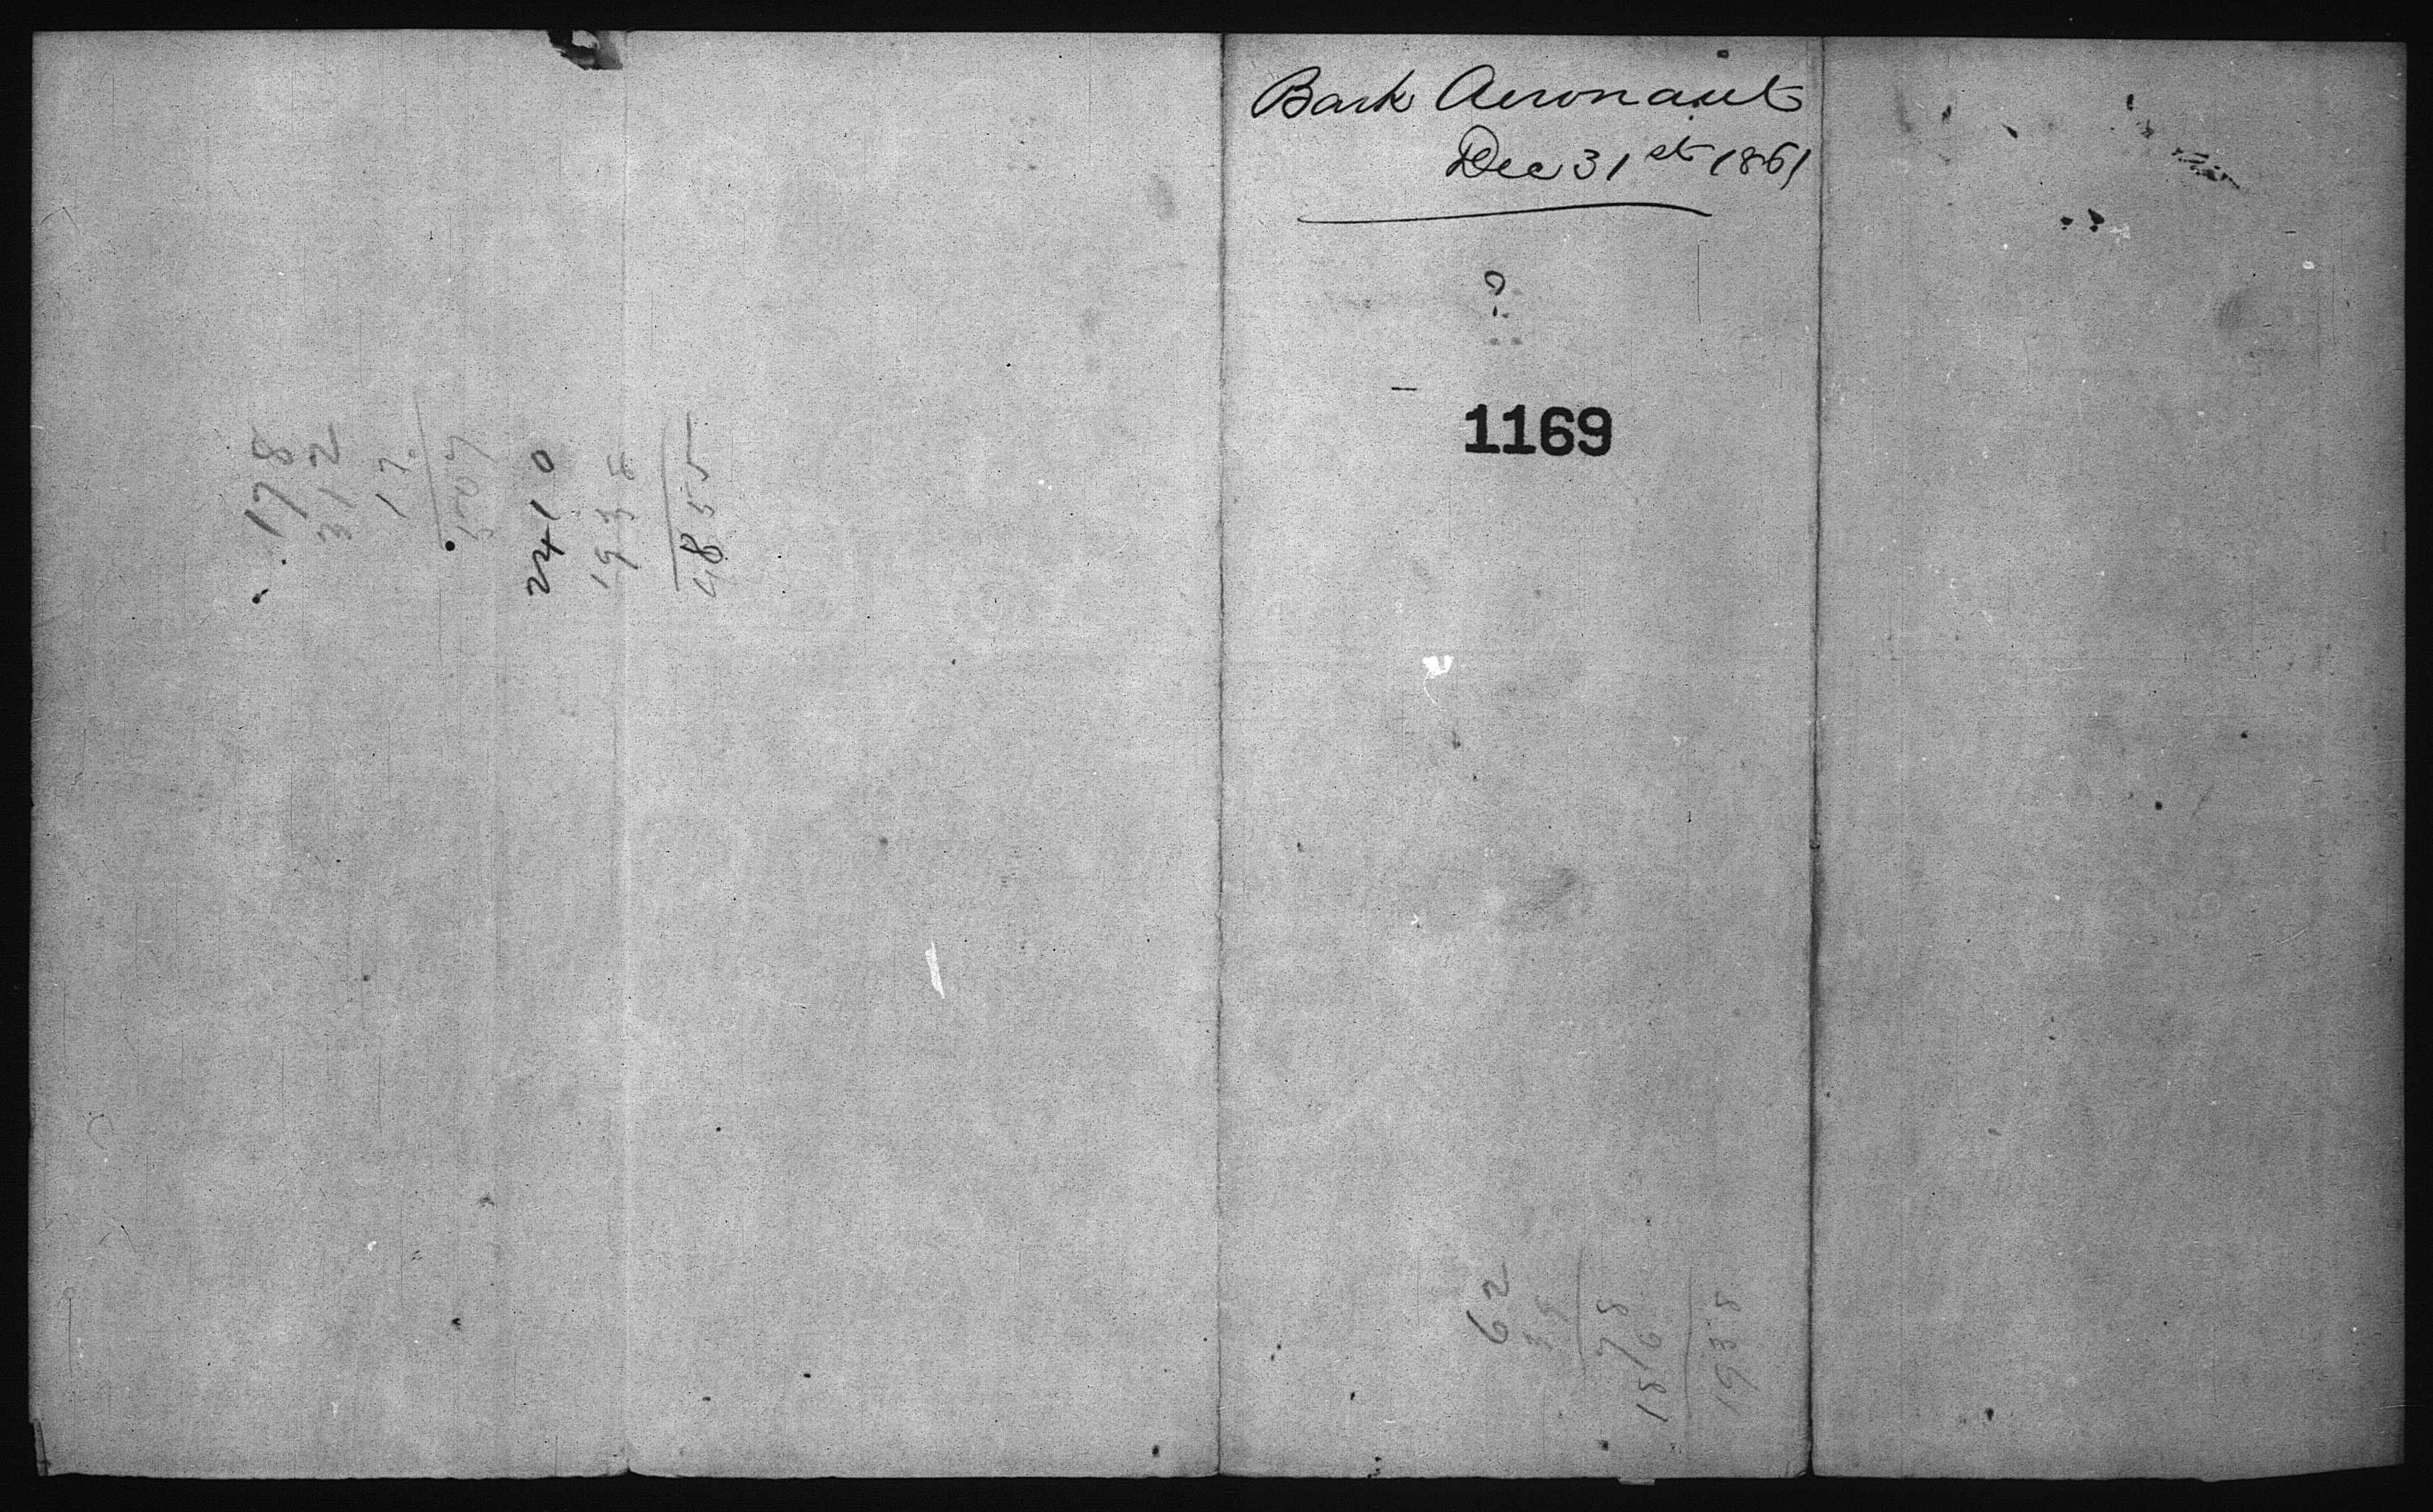 Bark Aeronaut
Dec 31st 1861
1169
178
312
17
507
2410
1938
4855
62
78
186
1938